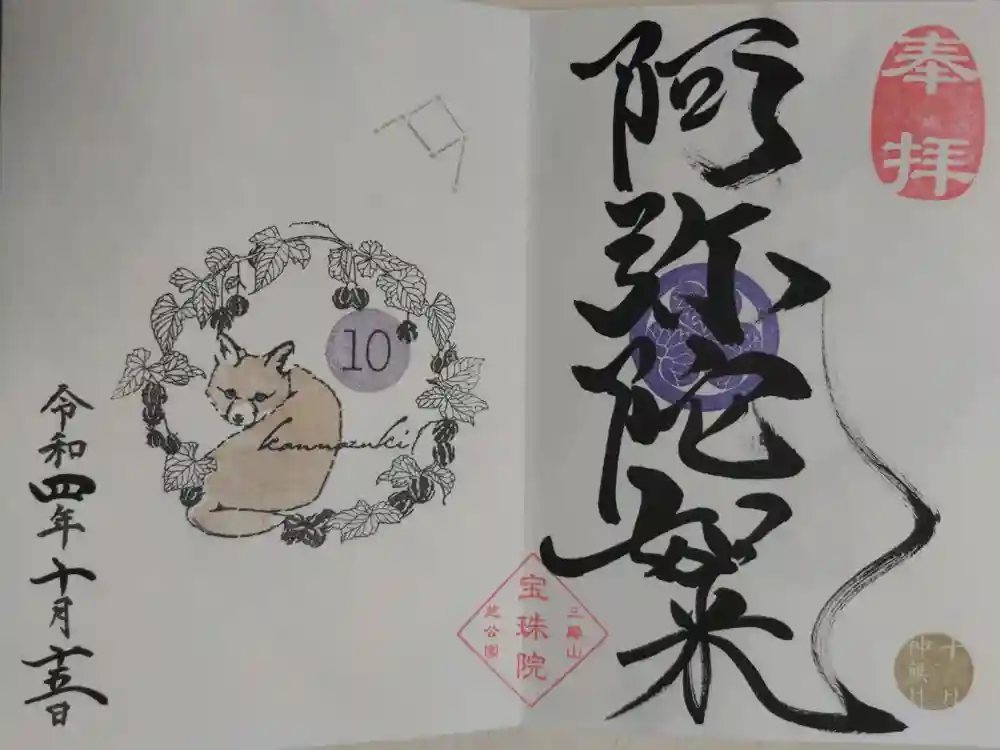 奉拝
阿弥陀如来
三縁山
宝珠院
芝公園
十月
神無月
10
kannazuki
令和四年十月十五日